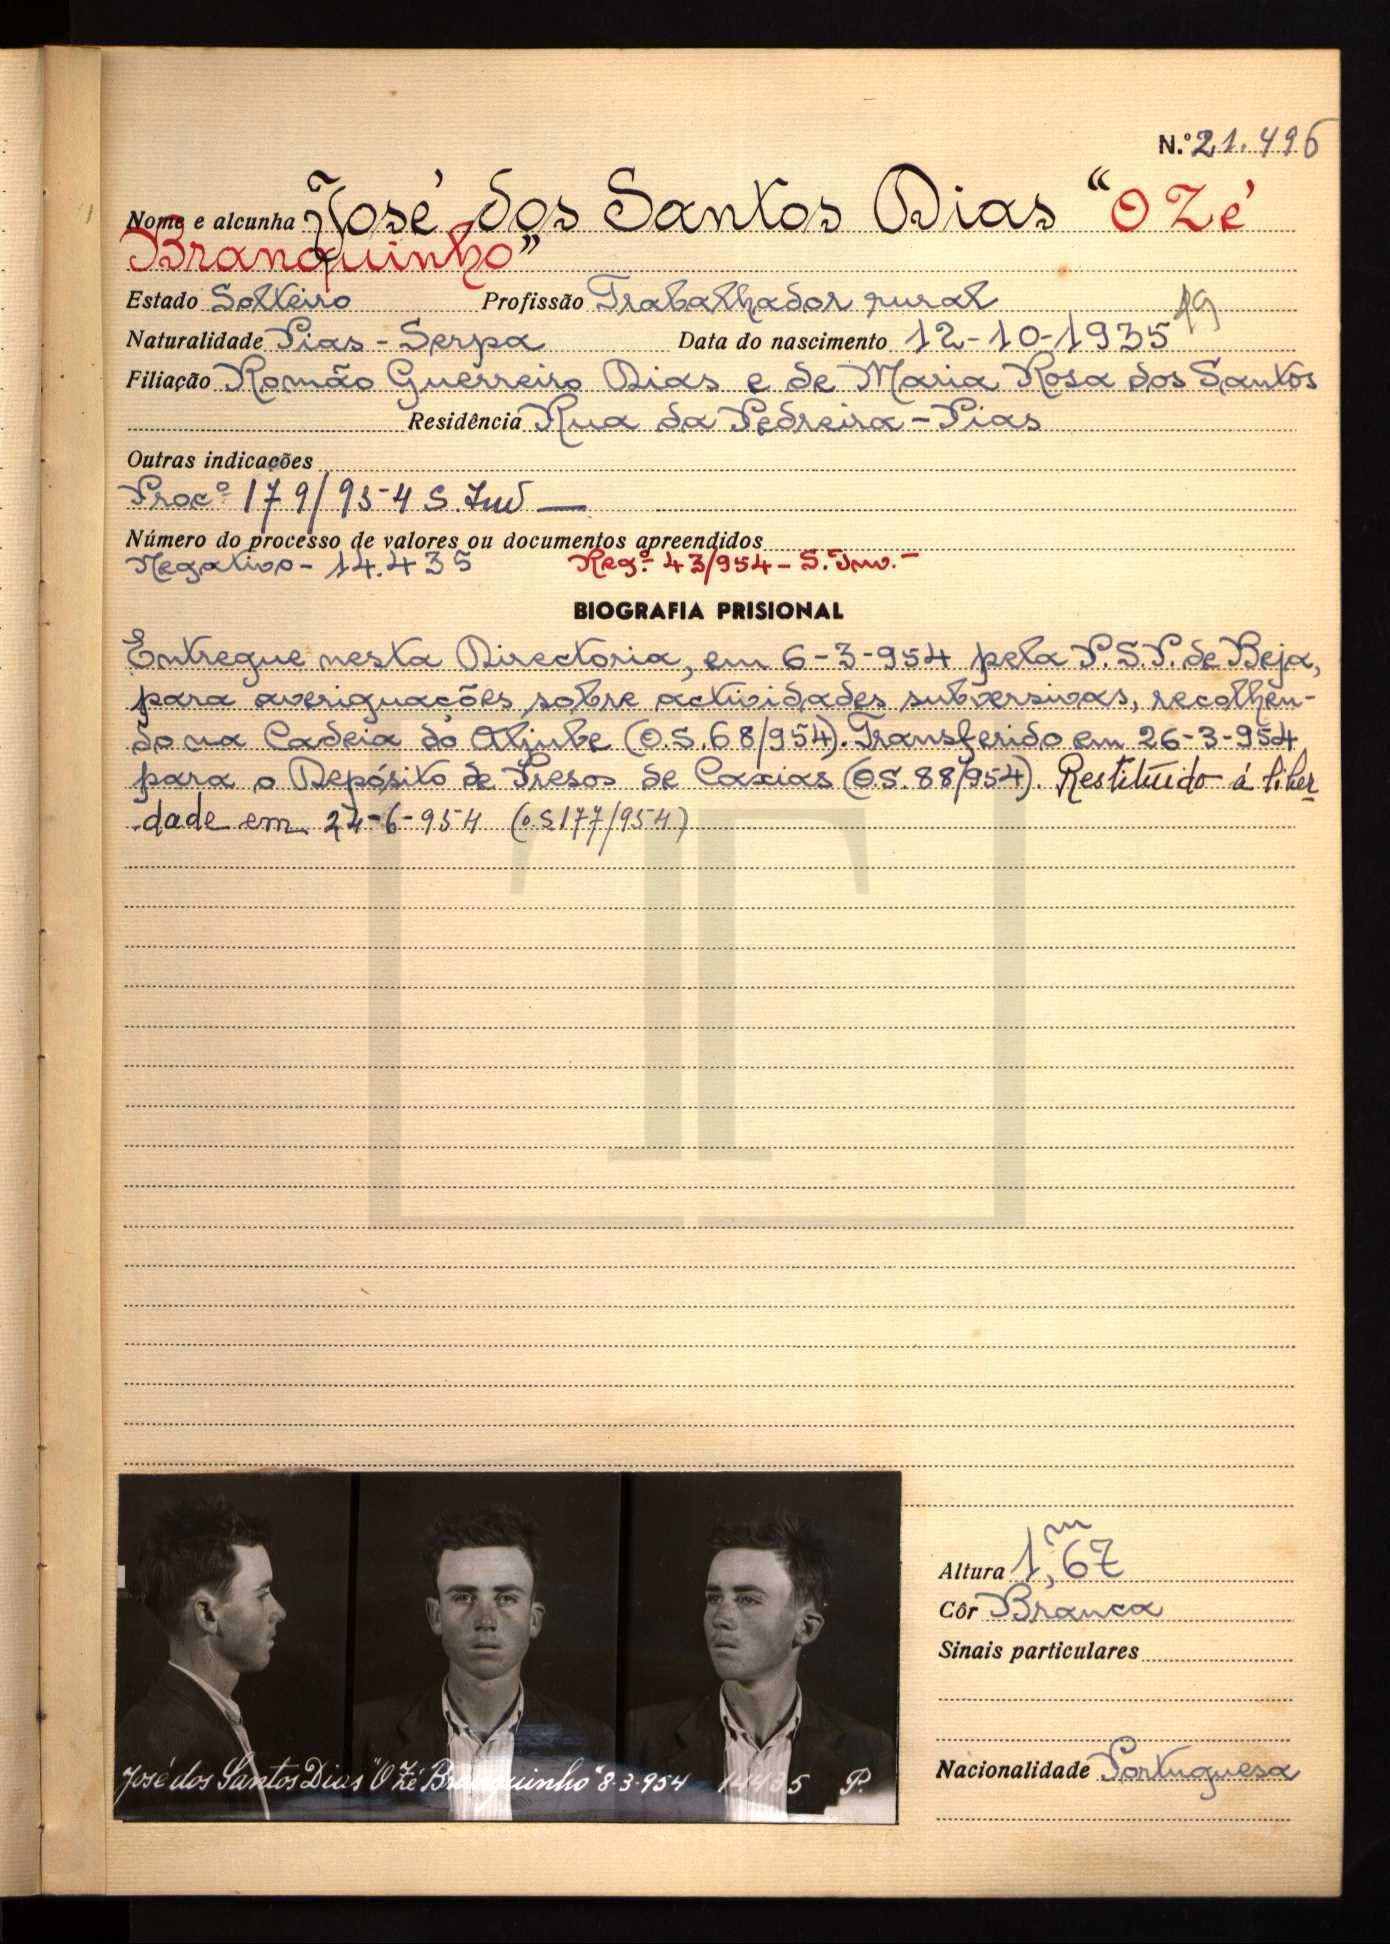 N.º 21.496
Nome e alcunha José dos Santos Dias "O Zé
Branquinho"
Estado Solteiro Profissão Trabalhador rural
19
Naturalidade Pias - Serpa Data do nascimento 12-10-1935
Filiação Romão Guerreiro Dias e de Maria Rosa dos Santos
Residência Rua da Pedreira - Pias
Outras indicações
Procº 179/954 S. Inv —
Número do processo de valores ou documentos apreendidos
Negativo - 14.435 Regº 43/954 - S. Inv. -
BIOGRAFIA PRISIONAL
Entregue nesta Directoria, em 6-3-954 pela P.S.P. de Beja,
para averiguações sobre actividades subversivas, recolhen-
do na Cadeia do Aljube (O.S. 68/954). Transferido em 26-3-954
para o Depósito de Presos de Caxias (O.S. 88/954). Restituído á liber
dade em 24-6-954 (O.S 177/954)
José dos Santos Dias "O Zé Branquinho" 8-3-954 14435 P.
Altura 1,67 m
Côr Branca
Sinais particulares
Nacionalidade Portuguesa